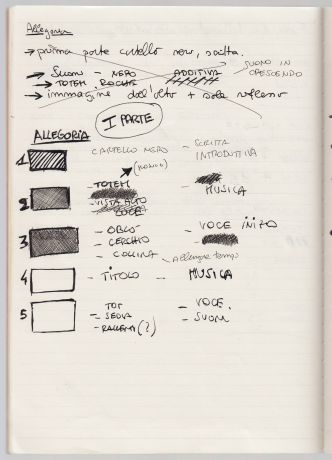 Allegoria
→ prima parte cartello nero, scritta.
→ SUONI - NERO ADDITIVA SUONO IN CRESCENDO
→ TOTEM ROCCIA
→ immagine dall'alto + sole riflesso
I PARTE
ALLEGORIA
1 CARTELLO NERO - SCRITTA INTRODUTTIVA
2 - TOTEM - MUSICA
- VISTA ALTO
3 - OBLÒ - VOCE INIZIO
- CERCHIO
- COLLINA
4 - TITOLO - MUSICA
5 TOT - VOCE.
- SEDIA - SUONI
- (?)